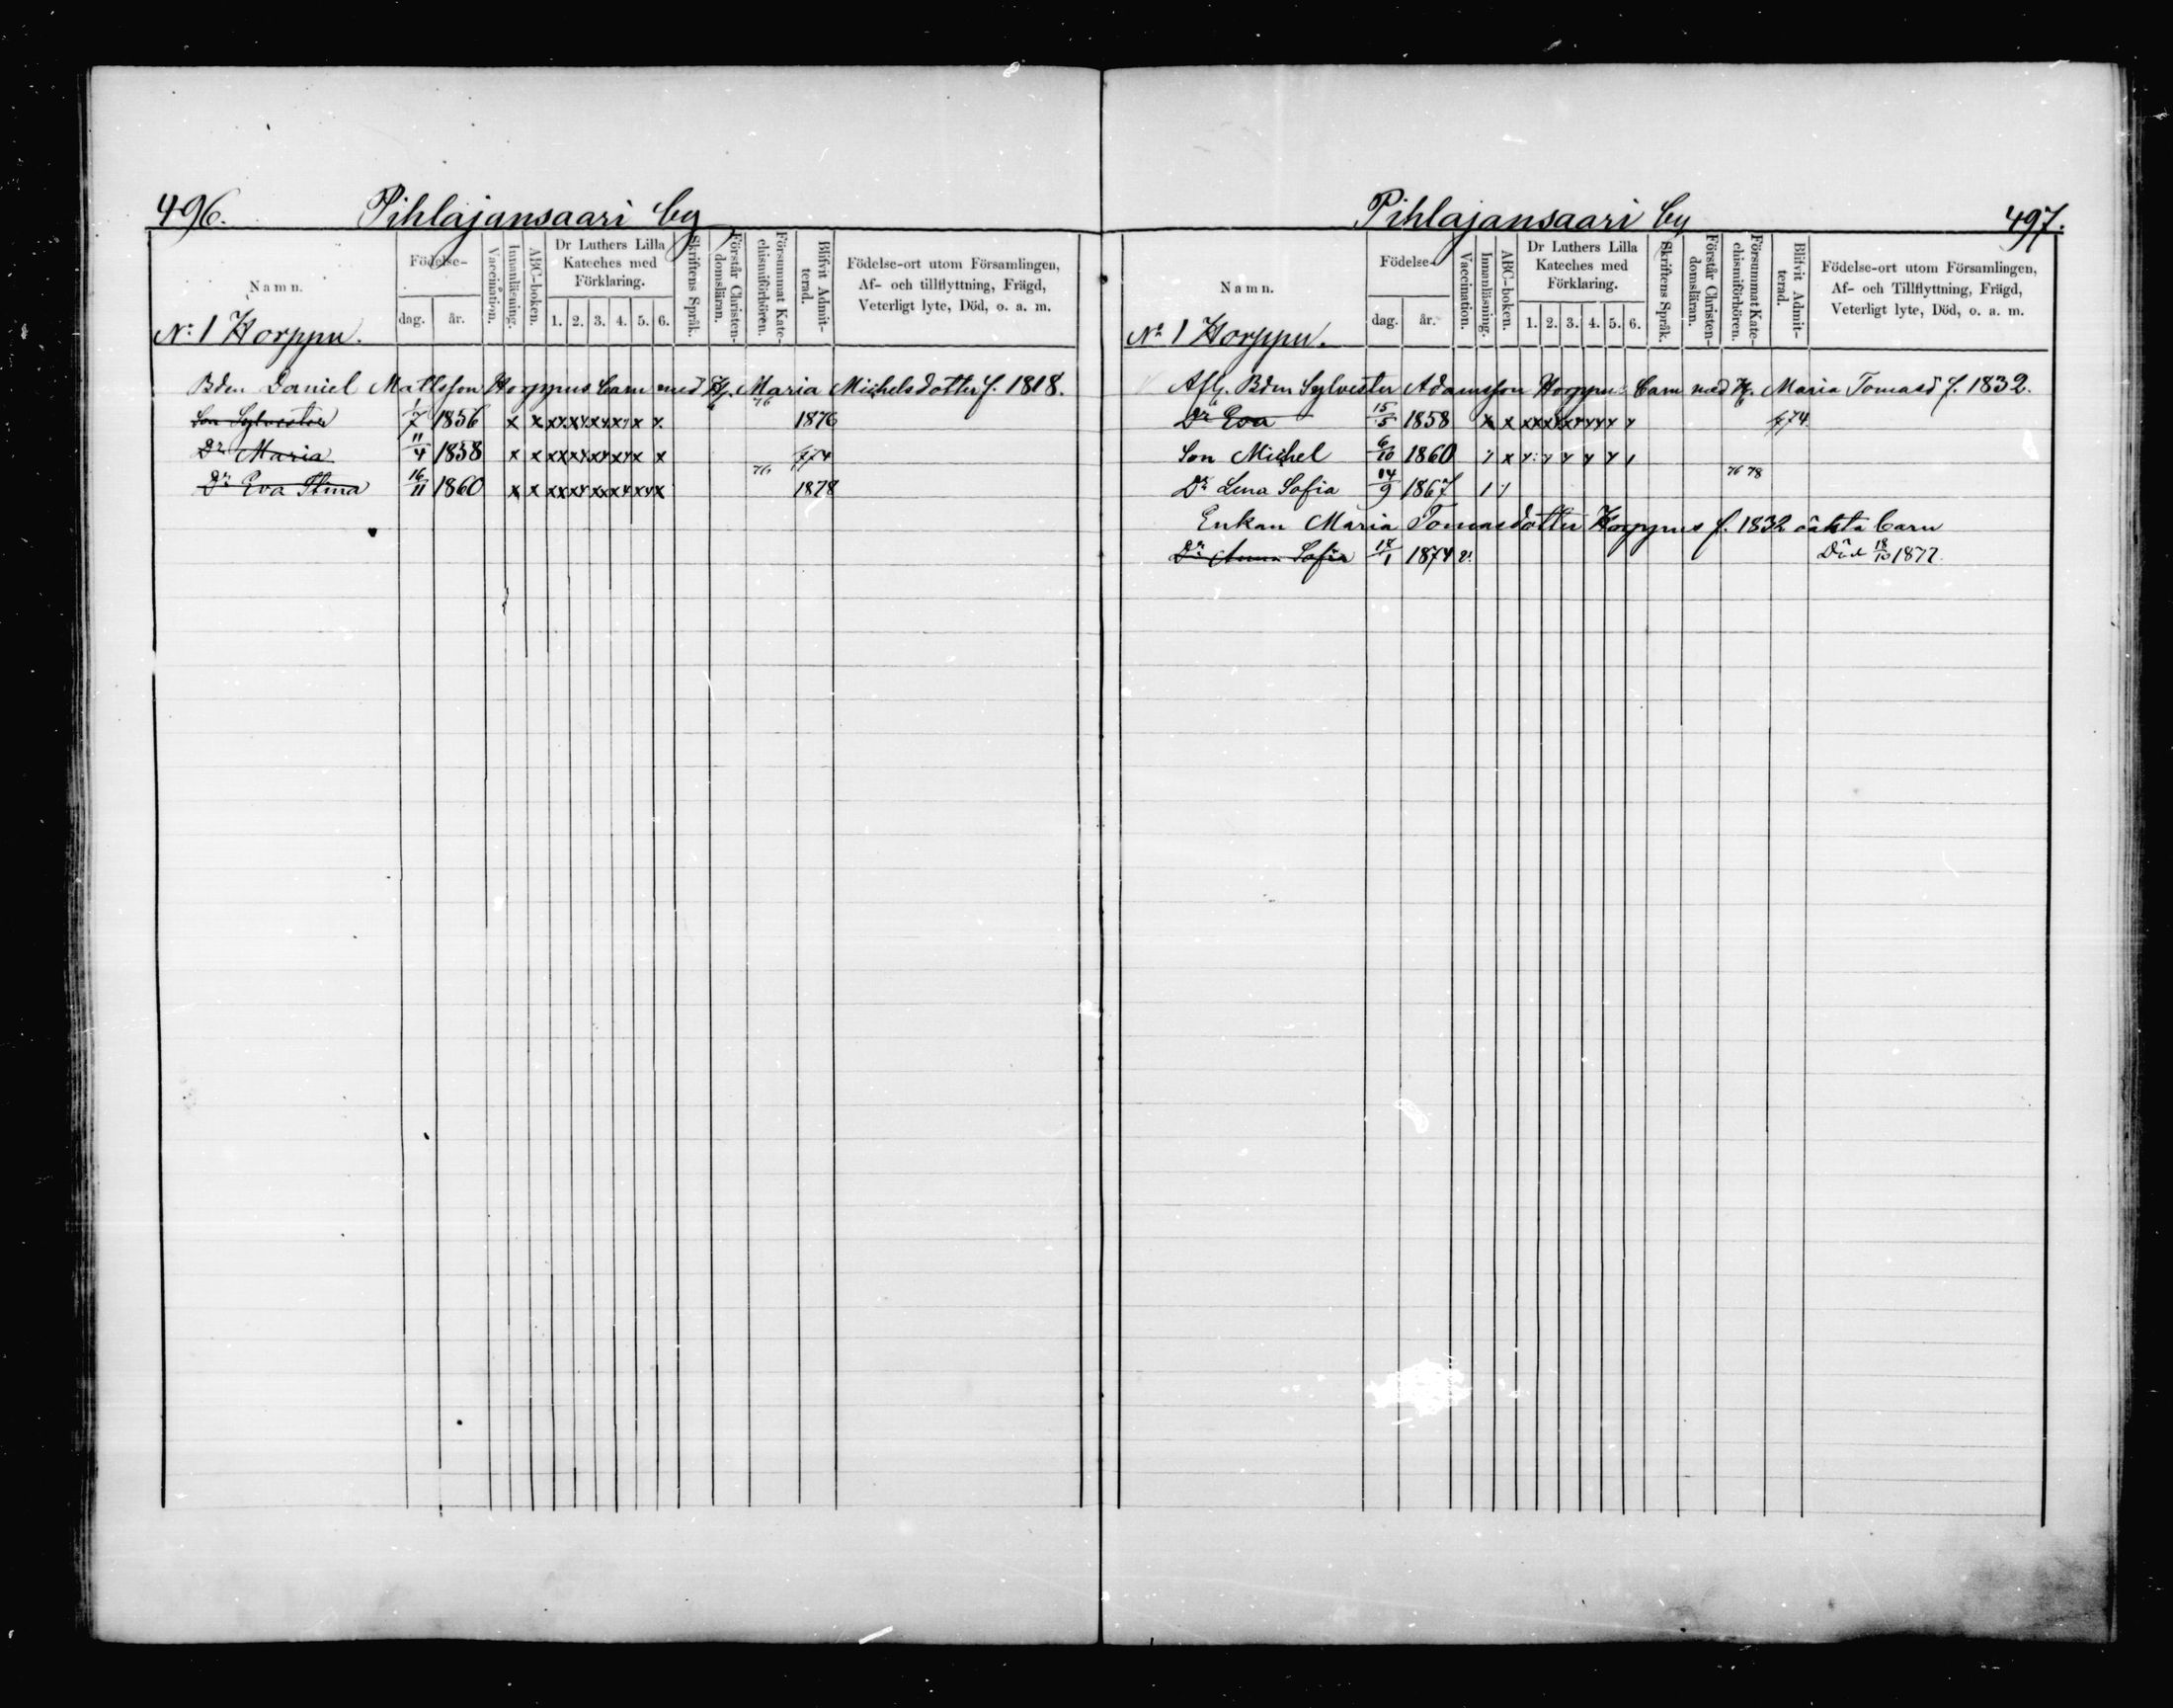 496. Pihlajansaari by
Namn. Födelse- dag. år. Vaccination. Innanläsning. ABC-boken. Dr Luthers Lilla Kateches med Förklaring. 1. 2. 3. 4. 5. 6. Skriftens Språk. Förstår Christendomsläran. Försummat Katechismiförhören. Blifvit Admitterad. Födelse-ort utom Församlingen, Af- och tillflyttning, Frägd, Veterligt lyte, Död, o. a. m.
No 1 Korppu.
Bden Daniel Mattsson Korppus barn med H. Maria Michelsdotter f. 1818.
Son Sylvester 1/7 1856 x x x x x x x x 76 1876
Dr Maria 11/4 1858 x x x x x x x x 74
Dr Eva Stina 16/11 1860 x x x x x x x x 76 1878
Pihlajansaari by 497.
Namn. Födelse- dag. år. Vaccination. Innanläsning. ABC-boken. Dr Luthers Lilla Kateches med Förklaring. 1. 2. 3. 4. 5. 6. Skriftens Språk. Förstår Christendomsläran. Försummat Katechismiförhören. Blifvit Admitterad. Födelse-ort utom Församlingen, Af- och Tillflyttning, Frägd, Veterligt lyte, Död, o. a. m.
No 1 Korppu.
Afl. Bden Sylvester Adamsson Korppus barn med H. Maria Tomasd f. 1832.
Dr Eva 15/5 1858 x x x x x x x x 74
Son Michel 6/10 1860
Dr Lena Sofia 04/9 1867 76 78
Enkan Maria Tomasdotter Korppus f. 1832 oäkta barn
Dr Anna Sofia 17/1 1874 v. Död 18/10 1877.